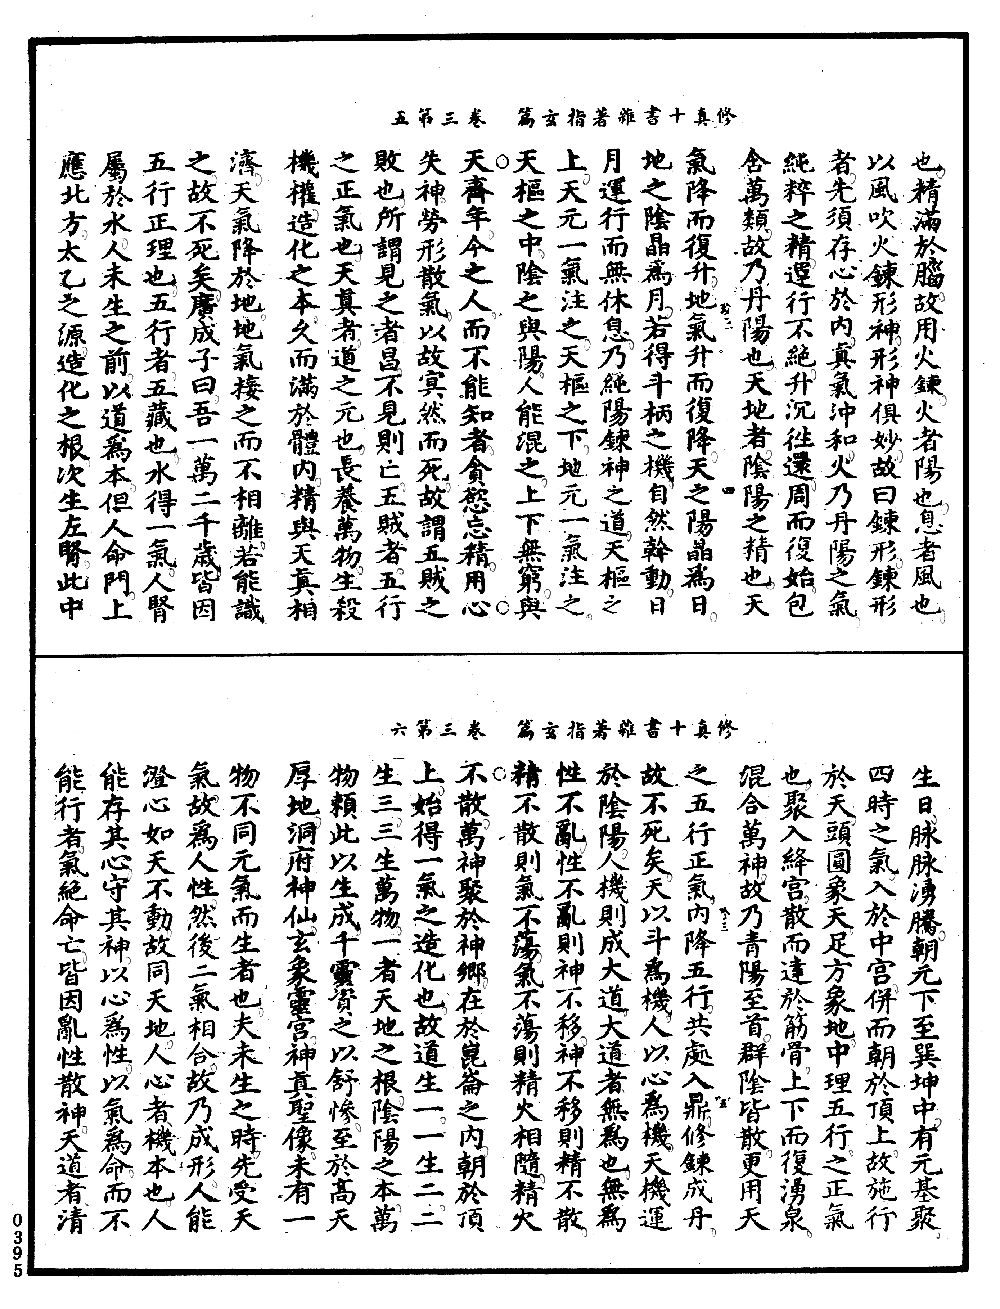 修真十書雜著指玄篇　卷三第五
也精滿於腦故用火鍊火者陽也息者風也
以風吹火鍊形神形神俱妙故曰鍊形鍊形
者先須存心於內真氣沖和火乃丹陽之氣
純粹之精運行不絕升沉徃還周而復始包
含萬類故乃丹陽也天地者陰陽之精也天
氣降而復升地氣升而復降天之陽晶為日
地之陰晶為月若得斗柄之機自然斡動日
月運行而無休息乃純陽鍊神之道天樞之
上天元一氣注之天樞之下地元一氣注之
天樞之中陰之與陽人能混之上下無窮與
天齊年今之人而不能知者貪慾忘精用心
失神勞形散氣以故冥然而死故謂五賊之
敗也所謂見之者昌不見則亡五賊者五行
之正氣也天真者道之元也長養萬物生殺
機權造化之本久而滿於體內精與天真相
濟天氣降於地地氣接之而不相離若能識
之故不死矣廣成子曰吾一萬二千歲皆因
五行正理也五行者五藏也水得一氣人腎
屬於水人未生之前以道為本但人命門上
應北方太乙之源造化之根次生左腎此中
修真十書雜著指玄篇　卷三第六
生日脉脉湧騰朝元下至巽坤中有元基聚
四時之氣入於中宮併而朝於頂上故施行
於天頭圓象天足方象地中理五行之正氣
也聚入絳宮散而達於筋骨上下而復湧泉
混合萬神故乃青陽至首群陰皆散更用天
之五行正氣內降五行共處入鼎修鍊成丹
故不死矣天以斗為機人以心為機天機運
於陰陽人機則成大道大道者無為也無為
性不亂性不亂則神不移神不移則精不散
精不散則氣不蕩氣不蕩則精火相隨精火
不散萬神聚於神鄉在於崑崙之內朝於頂
上始得一氣之造化也故道生一一生二二
生三三生萬物一者天地之根陰陽之本萬
物賴此以生成千靈資之以舒慘至於高天
厚地洞府神仙玄象靈宮神真聖像未有一
物不同元氣而生者也夫未生之時先受天
氣故為人性然後二氣相合故乃成形人能
澄心如天不動故同天地人心者機本也人
能存其心守其神以心為性以氣為命而不
能行者氣絕命亡皆因亂性散神天道者清
0395